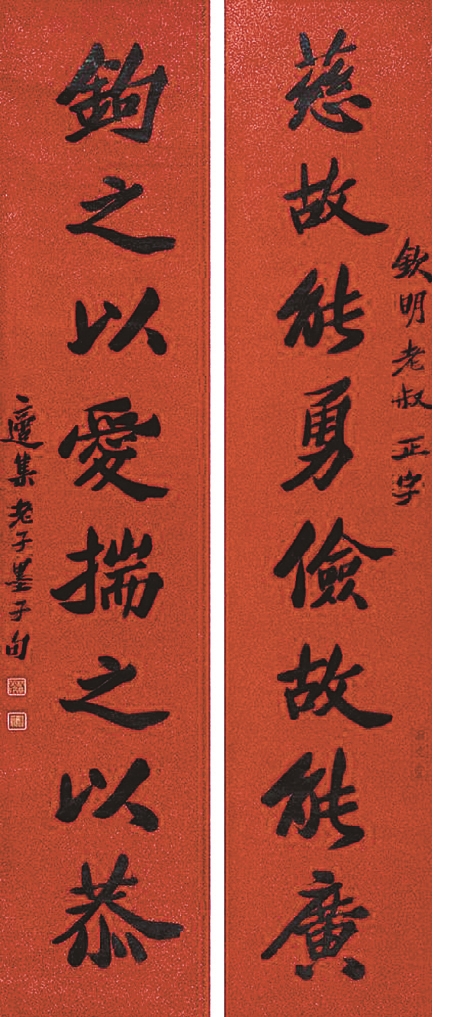 欽明老叔 正字
慈故能勇儉故能廣
鉤之以愛揣之以恭
適集老子墨子句